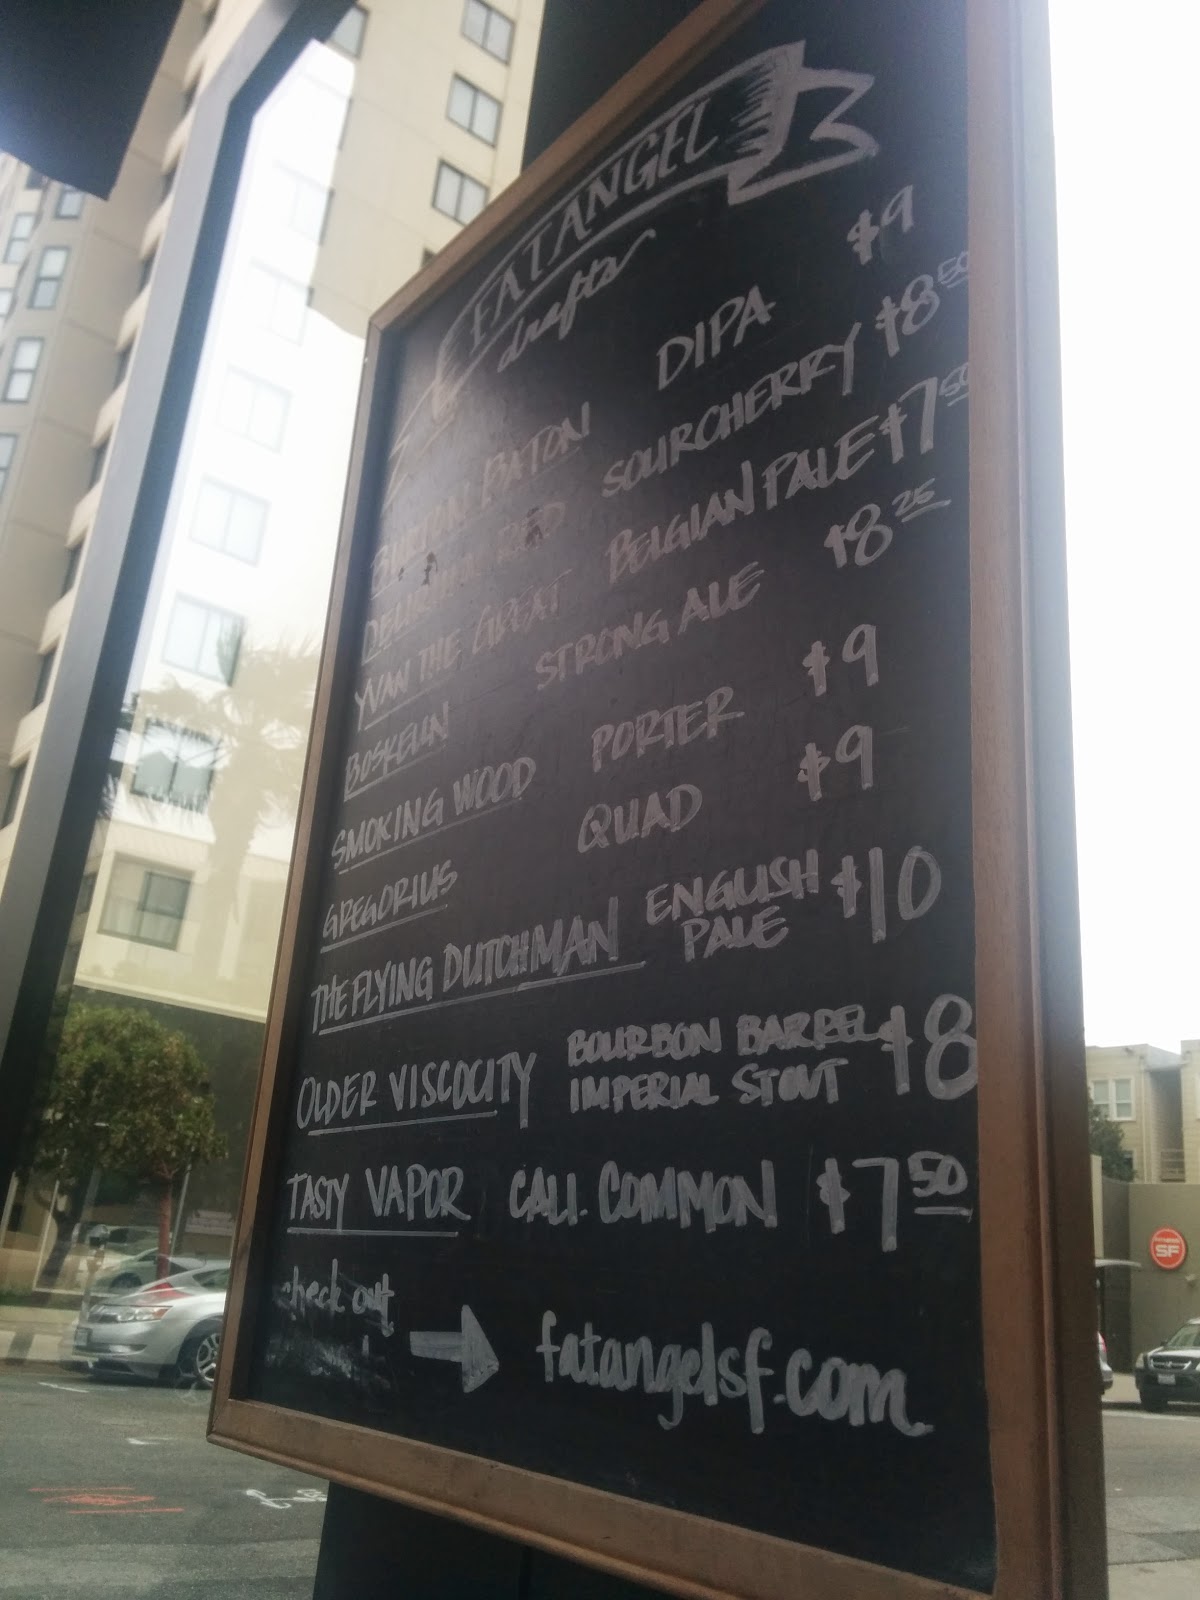 FATANGEL
drafts
BURTON BATON DIPA $9
DELIRIUM RED SOURCHERRY $8 50
YVAN THE GREAT BELGIAN PALE $7 50
BOSKEUN STRONG ALE $8 25
SMOKING WOOD PORTER $9
GREGORIUS QUAD $9
THE FLYING DUTCHMAN ENGLISH PALE $10
OLDER VISCOCITY BOURBON BARREL IMPERIAL STOUT $8
TASTY VAPOR CALI. COMMON $7 50
check out
fatangelsf.com
SF